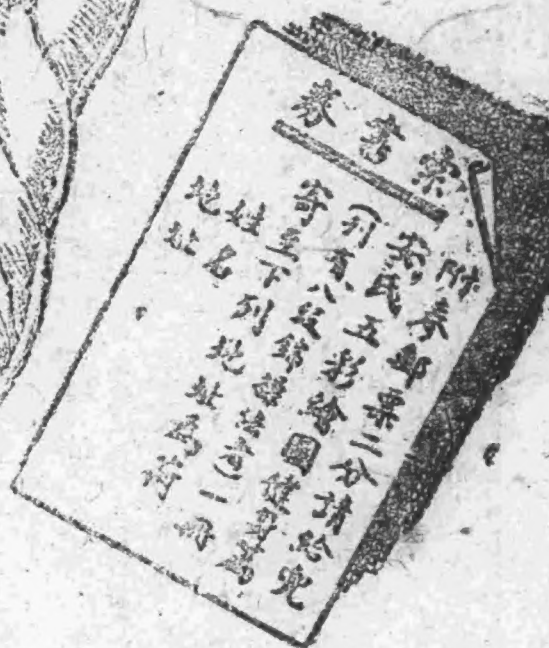 索書券
附奉郵票二分請給兜
安氏五彩繪圖健身篇
(刊有八段錦操法者)一冊
寄至下列地址為荷
姓名
地址